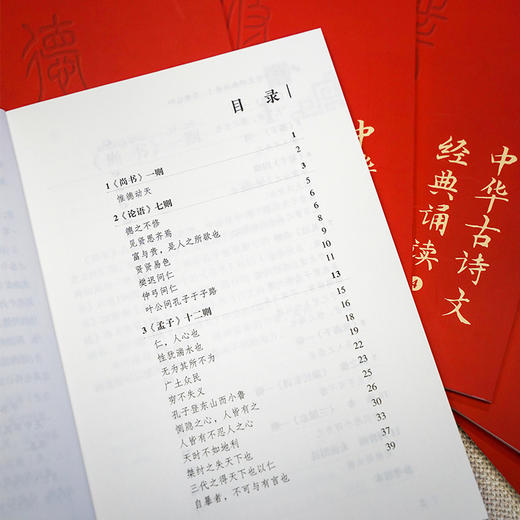 目录
1《尚书》一则 1
惟德动天 2
2《论语》七则 3
德之不修 5
见贤思齐焉 6
富与贵，是人之所欲也 6
贤贤易色 8
樊迟问仁 9
仲弓问仁 10
叶公问孔子于子路 11
3《孟子》十二则 13
仁，人心也 15
性犹湍水也 16
无为其所不为 18
广土众民 19
穷不失义 22
孔子登东山而小鲁 23
恻隐之心，人皆有之 25
人皆有不忍人之心 26
天时不如地利 30
桀纣之失天下也 33
三代之得天下也以仁 37
自暴者，不可与有言也 39
德
中华
中华古诗文
经典诵读
4